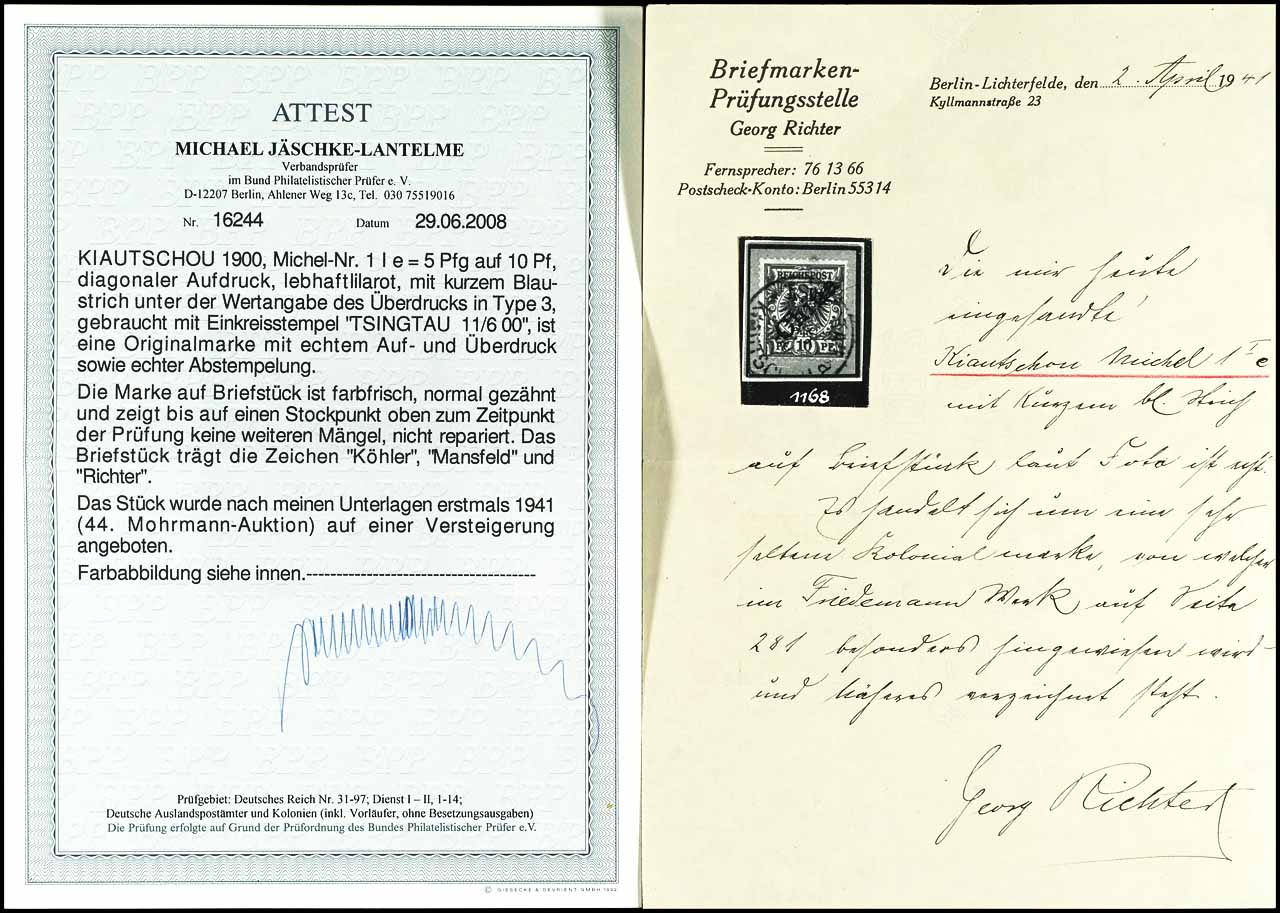 ATTEST
MICHAEL JÄSCHKE-LANTELME
Verbandsprüfer
im Bund Philatelistischer Prüfer e. V.
D-12207 Berlin, Ahlener Weg 13c, Tel. 030 75519016
Nr. 16244 Datum 29.06.2008
KIAUTSCHOU 1900, Michel-Nr. 1 I e = 5 Pfg auf 10 Pf,
diagonaler Aufdruck, lebhaftlilarot, mit kurzem Blau-
strich unter der Wertangabe des Überdrucks in Type 3,
gebraucht mit Einkreisstempel "TSINGTAU 11/6 00", ist
eine Originalmarke mit echtem Auf- und Überdruck
sowie echter Abstempelung.
Die Marke auf Briefstück ist farbfrisch, normal gezähnt
und zeigt bis auf einen Stockpunkt oben zum Zeitpunkt
der Prüfung keine weiteren Mängel, nicht repariert. Das
Briefstück trägt die Zeichen "Köhler", "Mansfeld" und
"Richter".
Das Stück wurde nach meinen Unterlagen erstmals 1941
(44. Mohrmann-Auktion) auf einer Versteigerung
angeboten.
Farbabbildung siehe innen.--------------------------------------
Prüfgebiet: Deutsches Reich Nr. 31-97; Dienst I – II, 1-14;
Deutsche Auslandspostämter und Kolonien (inkl. Vorläufer, ohne Besetzungsausgaben)
Die Prüfung erfolgte auf Grund der Prüfordnung des Bundes Philatelistischer Prüfer e.V.
© GIESECKE & DEVRIENT GMBH 1992
Briefmarken-
Prüfungsstelle
Georg Richter
Fernsprecher: 76 13 66
Postscheck-Konto: Berlin 55314
Berlin-Lichterfelde, den 2. April 1941
Kyllmannstraße 23
REICHSPOST
5 Pfg.
China
PF 10 PF
1168
Die mir heute
eingesandte
Kiautschou Michel 1 I e
mit kurzem bl. Strich
auf Briefstück laut Foto ist echt.
Es handelt sich um eine sehr
seltene Kolonialmarke, von welcher
im Friedemann Werk auf Seite
281 besonders hingewiesen wird
und Näheres verzeichnet steht.
Georg Richter